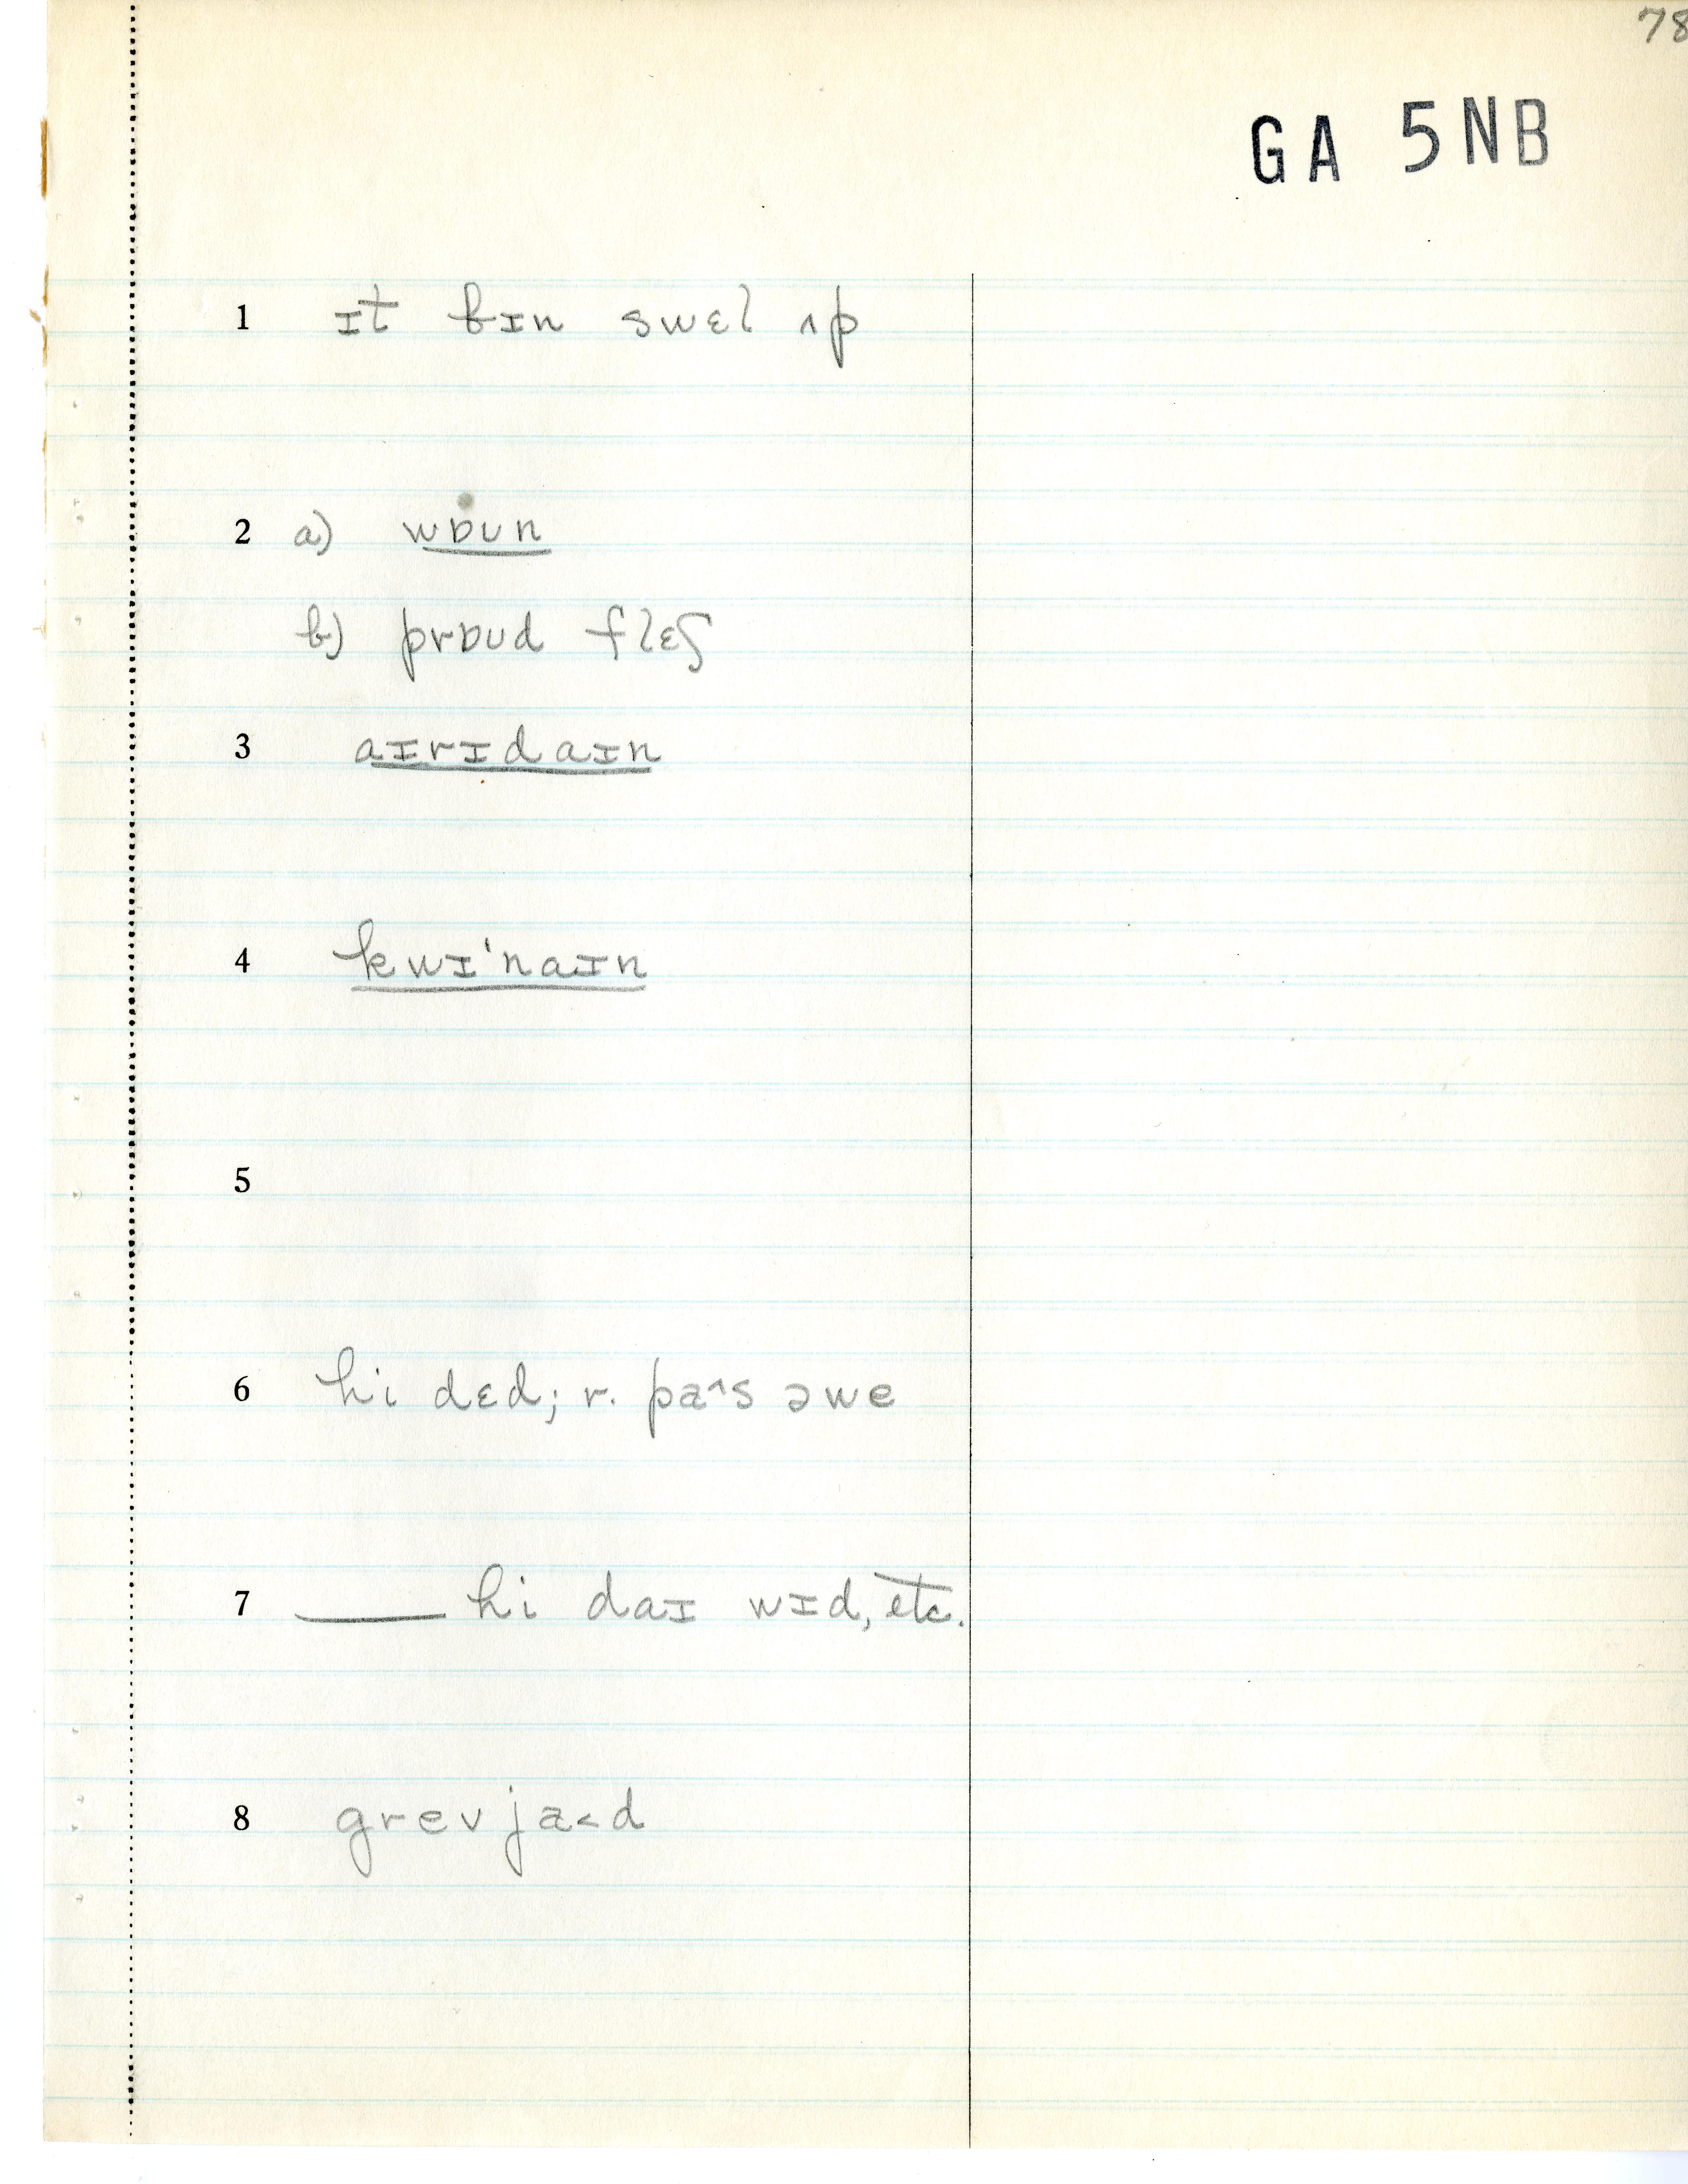 78
GA 5NB
1 ɪt bɪn swɛl ʌp
2 a) wɒun
b) prɒud flɛʃ
3 aɪrɪdaɪn
4 kwɪˈnaɪn
5
6 hi dɛd; r. pa˄s əwe
7 ____ hi daɪ wɪd, etc.
8 grevja˂d